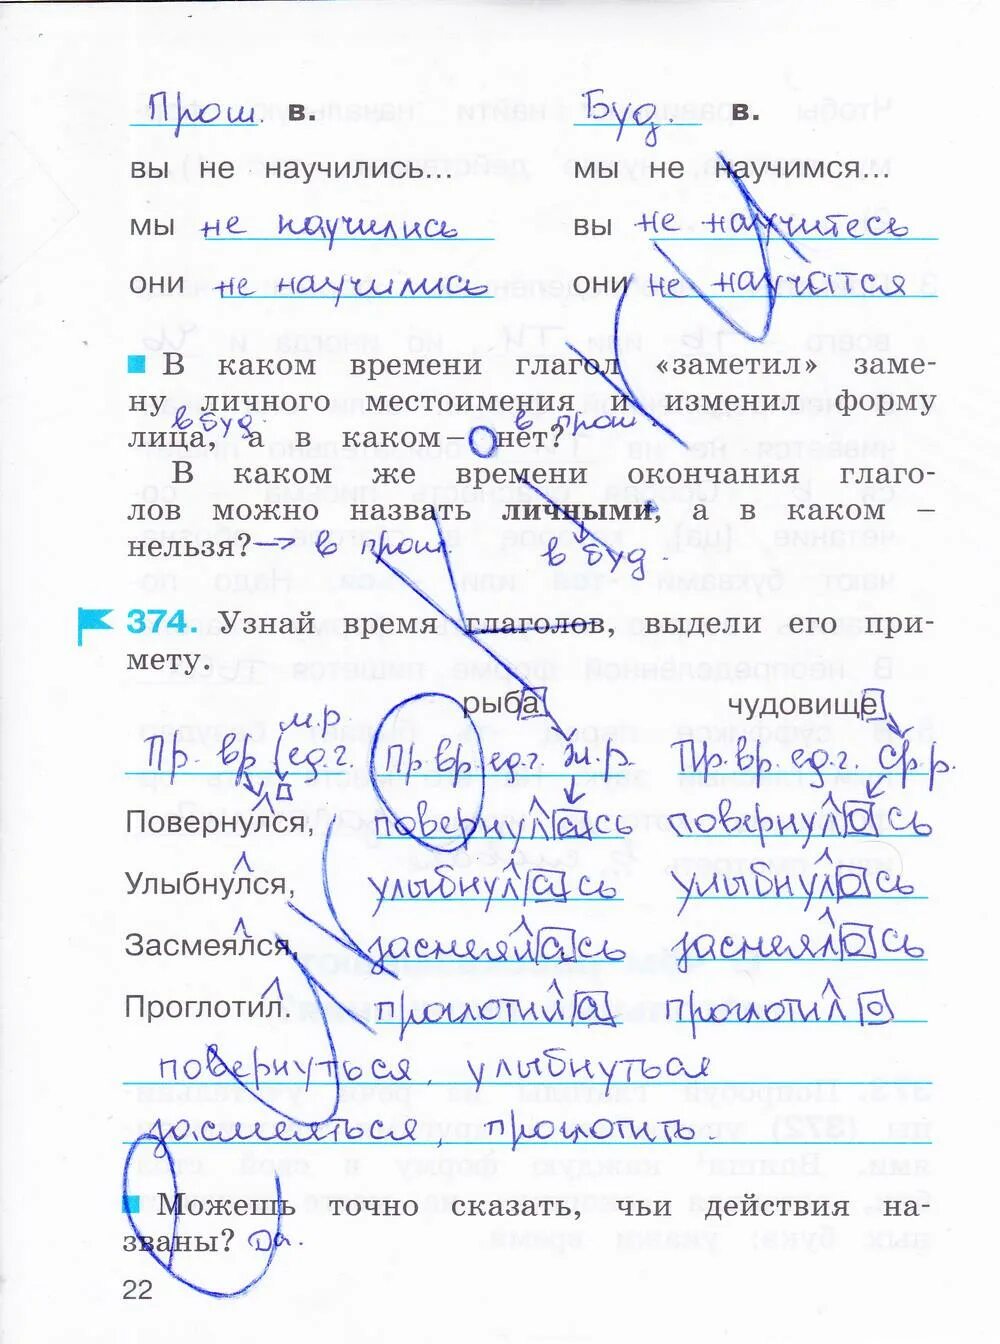 Прош. в. Буд. в.
вы не научились... мы не научимся...
мы не научились вы не научитесь
они не научились они не научатся
В каком времени глагол «заметил» заме-
ну личного местоимения и изменил форму
в буд. в прош.
лица, а в каком – нет?
В каком же времени окончания глаго-
лов можно назвать личными, а в каком –
нельзя? → в прош. в буд.
374. Узнай время глаголов, выдели его при-
мету.
рыба чудовище
м.р
Пр. вр. ед.г. Пр.вр.ед.г. ж.р. Пр.вр. ед.г. ср.р.
Повернулся, повернулась повернулось
Улыбнулся, улыбнулась улыбнулось
Засмеялся, засмеялась засмеялось
Проглотил. проглотила проглотило
повернуться, улыбнуться
засмеяться, проглотить.
Можешь точно сказать, чьи действия на-
званы? Да.
22